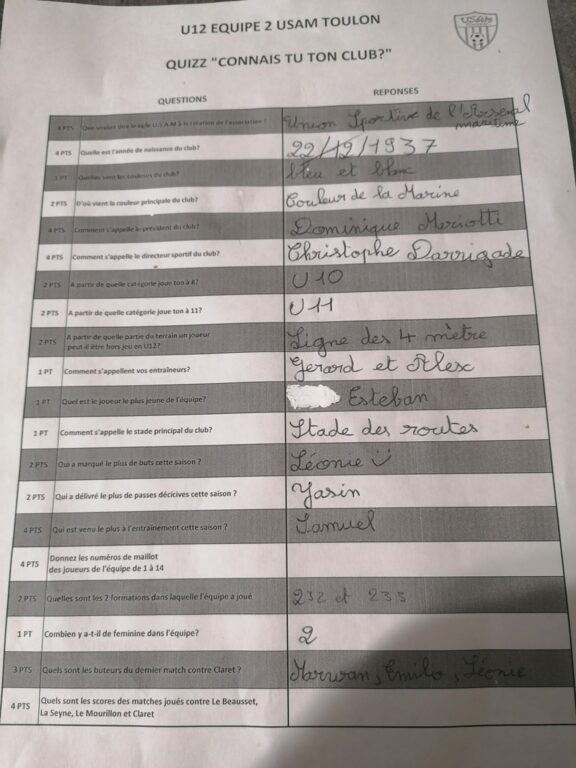 U12 EQUIPE 2 USAM TOULON
USAM
QUIZZ "CONNAIS TU TON CLUB?"
QUESTIONS REPONSES
4 PTS Que voulait dire le sigle U.S.A.M à la création de l'association ? Union Sportive de l'Arsenal
maritime
4 PTS Quelle est l'année de naissance du club? 22/12/1937
1 PT Quelles sont les couleurs du club? bleu et blanc
2 PTS D'où vient la couleur principale du club? Couleur de la Marine
4 PTS Comment s'appelle le président du club? Dominique Mariotti
4 PTS Comment s'appelle le directeur sportif du club? Christophe Darrigade
2 PTS A partir de quelle catégorie joue ton à 8? U10
2 PTS A partir de quelle catégorie joue ton à 11? U11
2 PTS A partir de quelle partie du terrain un joueur
peut-il être hors jeu en U12? Ligne des 4 mètre
1 PT Comment s'appellent vos entraîneurs? Gerard et Alex
1 PT Quel est le joueur le plus jeune de l'équipe? Esteban
1 PT Comment s'appelle le stade principal du club? Stade des routes
2 PTS Qui a marqué le plus de buts cette saison ? Léonie
2 PTS Qui a délivré le plus de passes décicives cette saison ? Yasin
4 PTS Qui est venu le plus à l'entrainement cette saison ? Samuel
4 PTS Donnez les numéros de maillot
des joueurs de l'équipe de 1 à 14
2 PTS Quelles sont les 2 formations dans laquelle l'équipe a joué 232 et 233
1 PT Combien y a-t-il de feminine dans l'équipe? 2
3 PTS Quels sont les buteurs du dernier match contre Claret ? Marwan, Emilio, Léonie
4 PTS Quels sont les scores des matches joués contre Le Beausset,
La Seyne, Le Mourillon et Claret